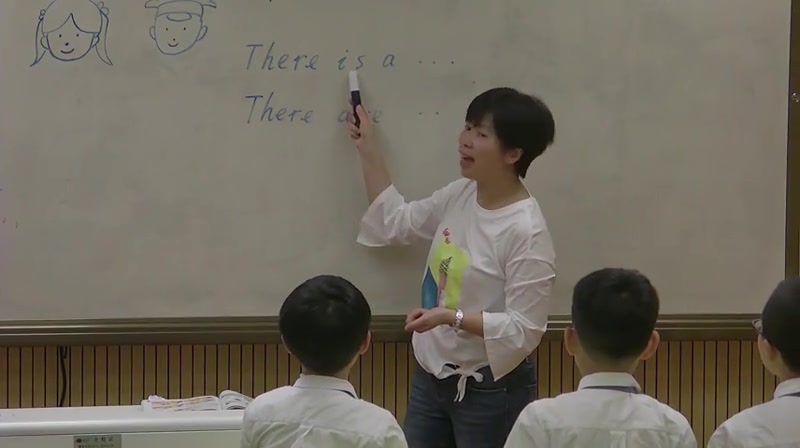 There is a ...
There are ..